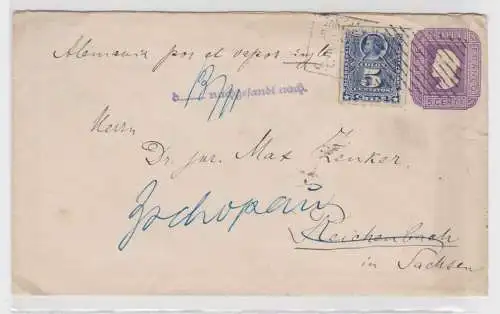 Alemania por el vapor
5
nachgesandt nach
Herrn
Dr. jur. Max Zenker.
Zschopau
Reichenbach
in Sachsen